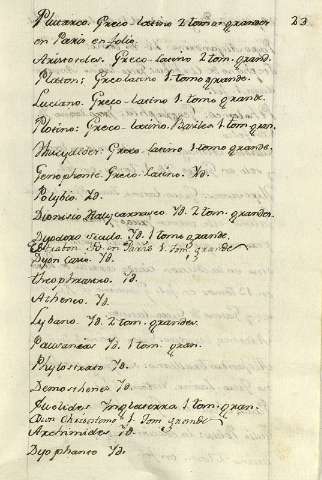 23
Plutarco. Greco-latino 2 tom. grandes
en Paris en folio.
Aristoteles. Greco-latino 2 tom. grand.
Platon: Greco latino 1. tomo grande.
Luciano. Greco-latino 1. tomo grande.
Plotino: Greco-latino. Basilea 1. tom. gran.
Thucydides: Greco-latino 1 tomo grande.
Genophonte Greco-latino: Yd.
Polybio Yd.
Dionisio Halycarnaseo Yd. 2 tom. grandes.
Dyodoro siculo Yd. 1 tomo grande.
Yd. en Paris 1 tom. grande
Dyon Casio. Yd.
Theophrasto. Yd.
Atheneo. Yd.
Lybano. Yd. 2 tom. grandes.
Pausanias Yd. 1 tom. gran.
Phylostrato Yd.
Demosthenes Yd.
Euclides Ynglaterra 1 tom. gran.
Dion Chrisostomo 1. Tom grande
Archimides Yd.
Dyophanto Yd.